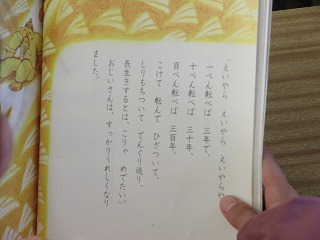 「えいやら えいやら えいやらや
一ぺん転べば 三年で、
十ぺん転べば 三十年、
百ぺん転べば 三百年。
こけて 転んで ひざついて、
しりもちついて でんぐり返り、
長生きするとは、こりゃ めでたい。」
おじいさんは、すっかりうれしくなり
ました。